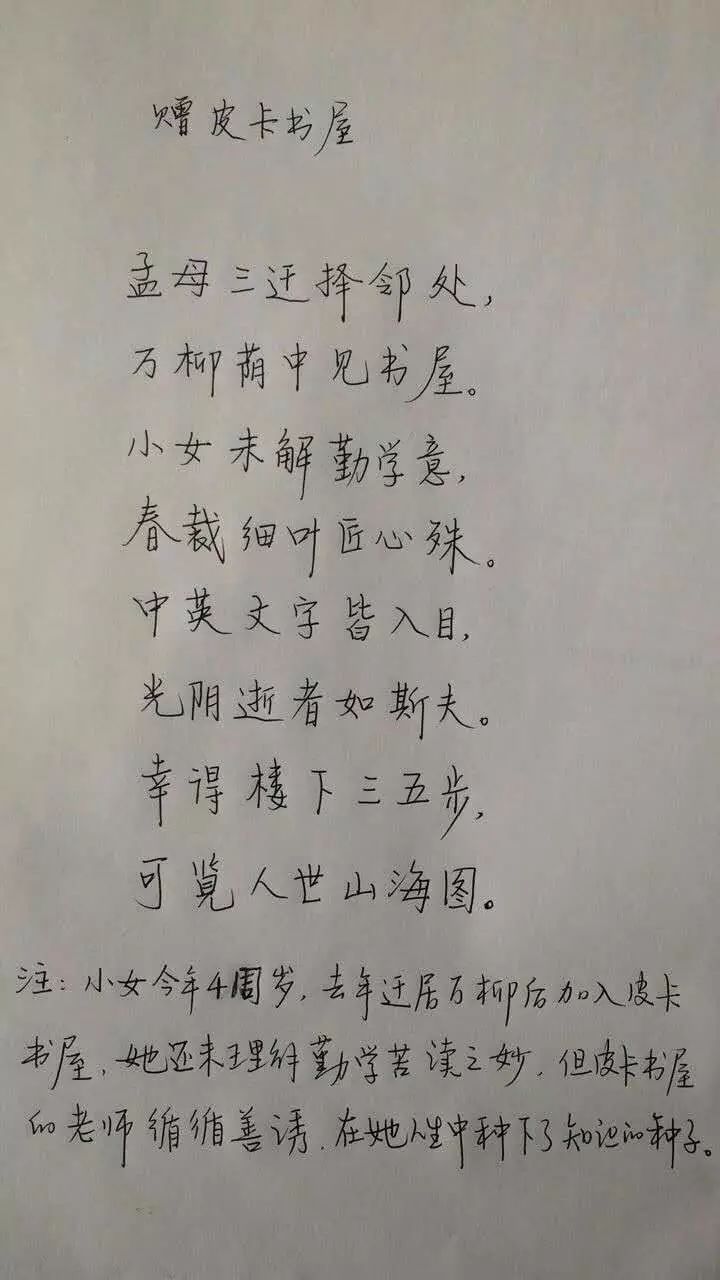 赠皮卡书屋
孟母三迁择邻处,
万柳荫中见书屋。
小女未解勤学意,
春裁细叶匠心殊。
中英文字皆入目,
光阴逝者如斯夫。
幸得楼下三五步,
可览人世山海图。
注:小女今年4周岁,去年迁居万柳后加入皮卡
书屋,她还未理解勤学苦读之妙,但皮卡书屋
的老师循循善诱,在她人生中种下了知识的种子。